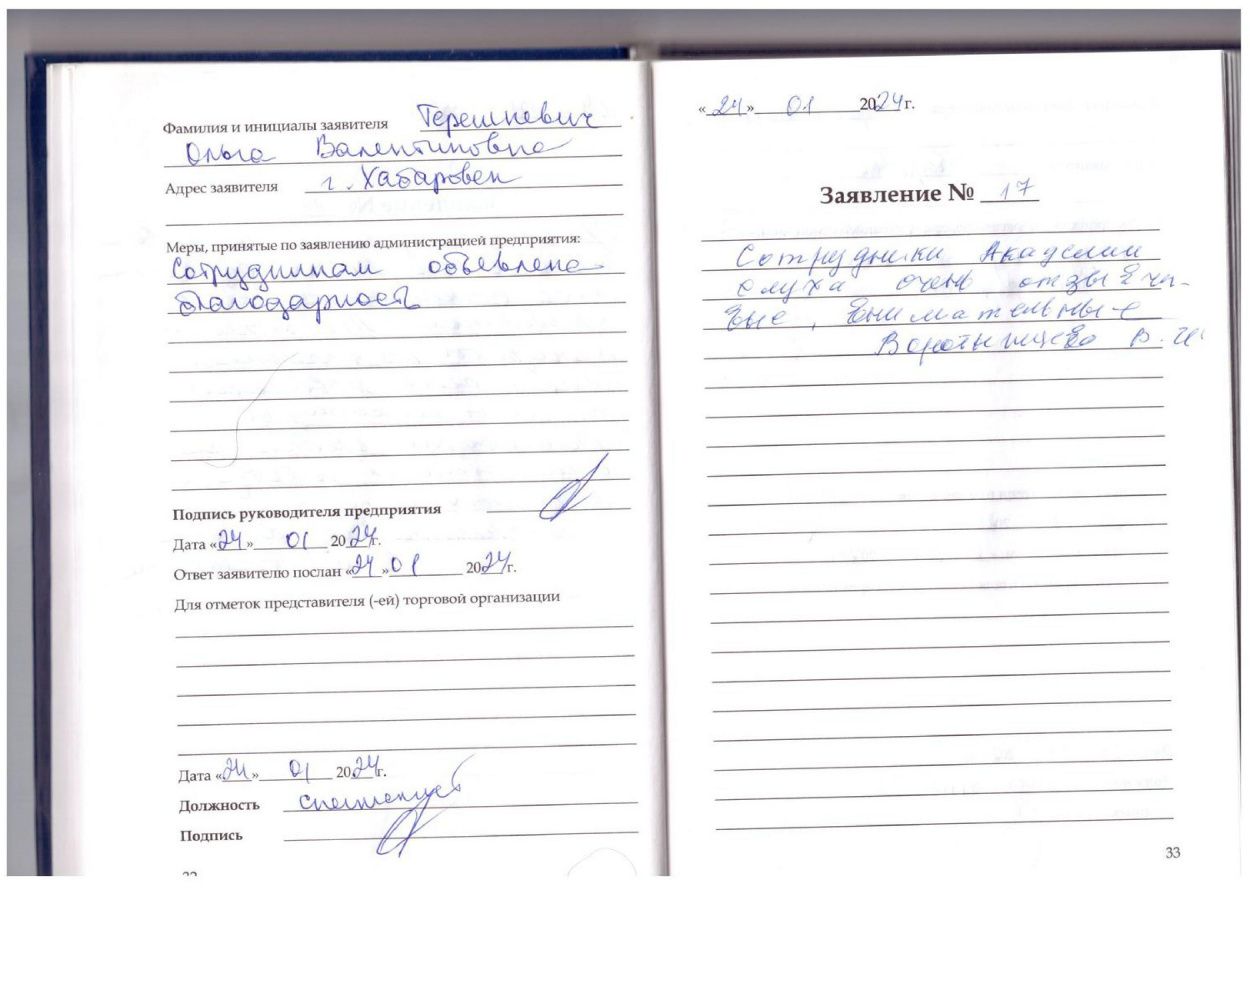 Фамилия и инициалы заявителя Терешкевич
Ольга Валентиновна
Адрес заявителя г. Хабаровск
Меры, принятые по заявлению администрацией предприятия:
Сотрудникам объявлена
благодарность
Подпись руководителя предприятия
Дата «24» 01 2024г.
Ответ заявителю послан «24» 01 2024г.
Для отметок представителя (-ей) торговой организации
Дата «24» 01 2024г.
Должность
Подпись
«24» 01 2024г.
Заявление № 17
Сотрудники Академии
слуха очень отзывчи-
вые, внимательные
33